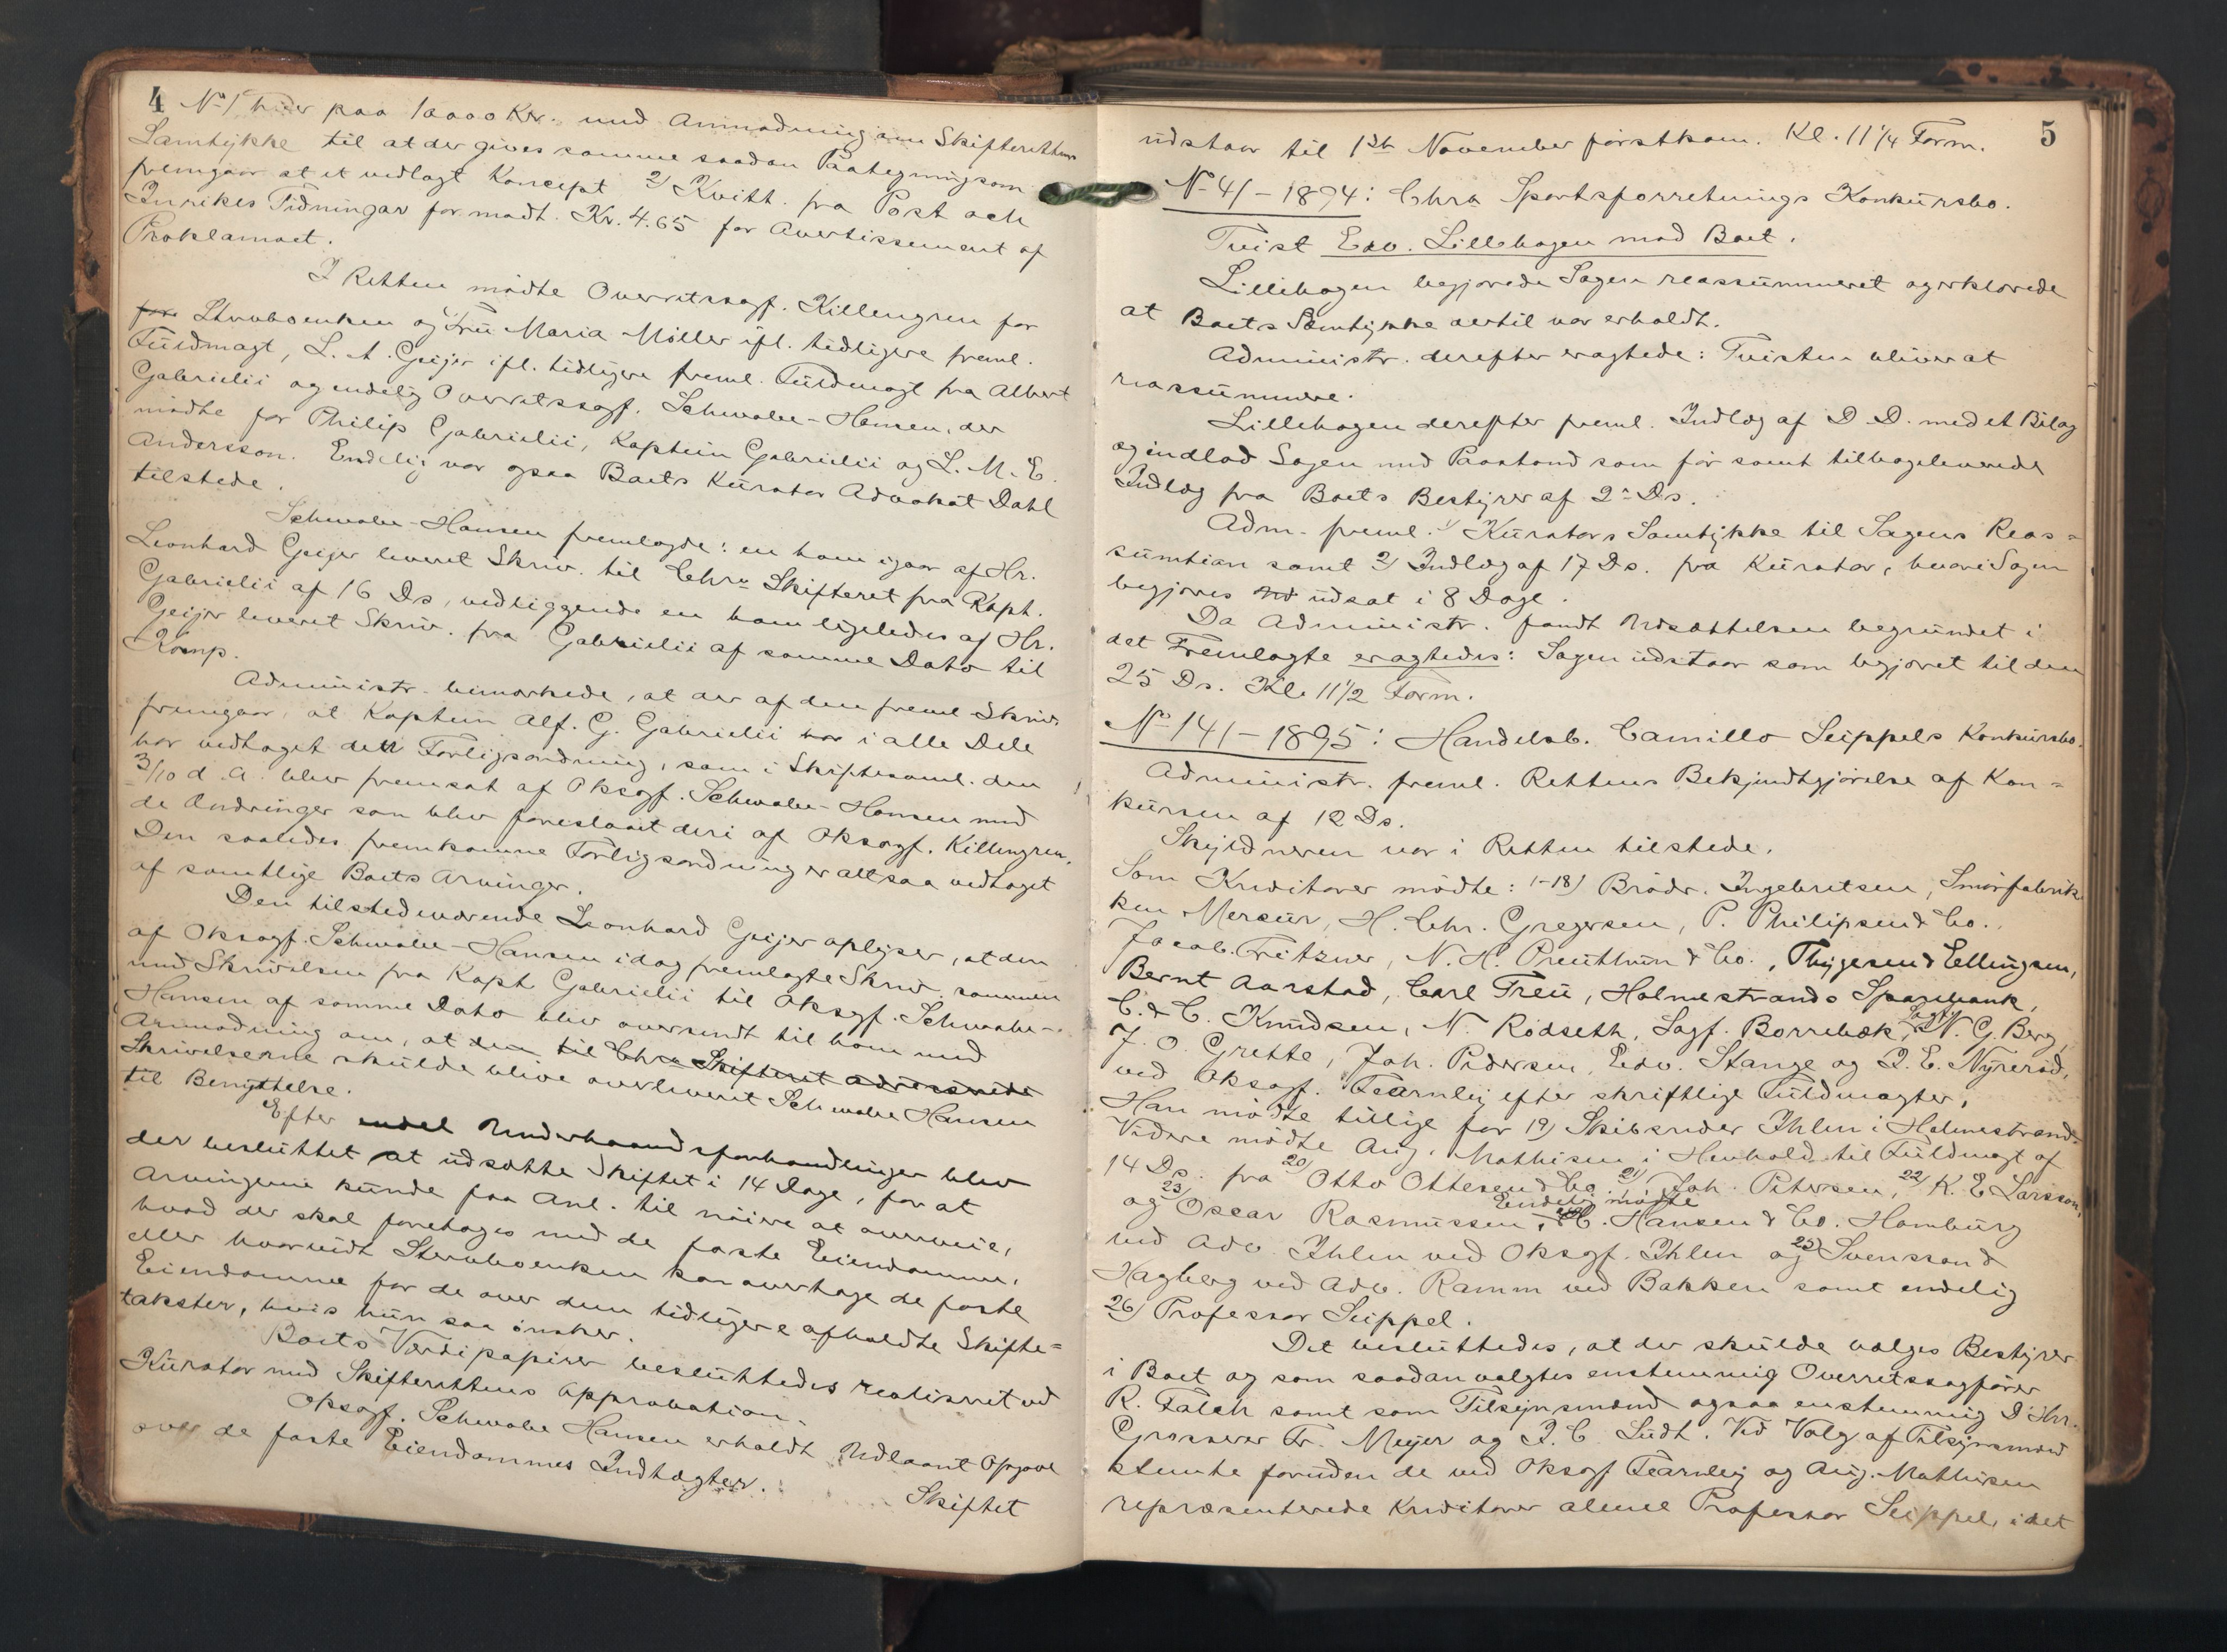 4 No 1 paa 10000 Kr. med Anmodning om Skifterettens
Samtykke til at der gives samme saadan Paategning som
fremgaar af et vedlagt Koncept 2) Kvitt. fra Post och
Inrikes Tidningar for modt. Kr. 4.65 for Avertissement af
Proklamaet.
I Retten mødte Overretssagf. Killengren for
Sterboenken og Fru Maria Møller ifl. tidligere freml.
Fuldmagt, L. A. Geijer ifl. tidligere freml. Fuldmagt fra Albert
Gabrielii og endelig Overretssagf. Schwabe-Hansen, der
mødte for Philip Gabrielii, Kaptein Gabrielii og L. M. E.
Andersson. Endelig var ogsaa Boets Kurator Advokat Dahl
tilstede.
Schwabe-Hansen fremlagde: en ham igaar af Hr.
Leonhard Geijer leveret Skriv. til Chra Skifteret fra Kapt.
Gabrielii af 16 Ds, vedliggende en ham ligeledes af Hr.
Geijer leveret Skriv. fra Gabrielii af samme Dato til
Komp.
Administr. bemærkede, at der af den freml. Skriv.
fremgaar, at Kaptein Alf. G. Gabrielii har i alle Dele
har vedtaget den Forligsordning, som i Skiftesaml. den
3/10 d. A. blev fremsat af Oksagf. Schwabe-Hansen med
de Ændringer som blev foreslaaet deri af Oksagf. Killengren.
Den saaledes fremkomne Forligsordning er altsaa vedtaget
af samtlige Boets Arvinger.
Den tilstedeværende Leonhard Geijer oplyser, at den
af Oksagf. Schwabe-Hansen idag fremlagte Skriv. sammen
med Skrivelsen fra Kapt Gabrielii til Oksgf. Schwabe-
Hansen af samme Dato blev oversendt til ham med
Anmodning om, at den til Chra Skifteret adresserede
Skrivelserne skulde blive overleveret Schwabe Hansen
til Benyttelse.
Efter endel Underhaandsforhandlinger blev
der besluttet at udsætte Skiftet i 14 Dage, for at
Arvingerne kunde faa Anl. til nøiere at overveie,
hvad der skal foretages med de faste Eiendomme,
eller hvorvidt Sterboenken kan overtage de faste
Eiendomme for de over dem tidligere afholdte Skifte-
takster, hvis hun saa ønsker.
Boets Værdipapirer besluttedes realiseret ved
Kurator med Skifterettens Approbation.
Oksagf. Schwabe Hansen erholdt Udlaant Opgave
over de faste Eiendommes Indtægter.
Skiftet
5
udstaar til 1ste November førstkom. Kl. 11 1/4 Form.
No 41 – 1894: Chra Sportsforretnings Konkursbo.
Tvist Edv. Lillehagen mod Boet.
Lillehagen begjærede Sagen reassummeret og erklærede
at Boets Samtykke dertil var erholdt.
Administr. derefter eragtede: Tvisten bliver at
reassummere.
Lillehagen derefter freml. Indlæg af D. D. med et Bilag
og indlod Sagen med Paastand som før samt tilbageleverede
Indlæg fra Boets Bestyrer af 2 Ds.
Adm. freml. 1) Kurators Samtykke til Sagens Reas-
sumtion samt 2) Indlæg af 17 Ds. fra Kurator, hvori Sagen
begjæres udsat i 8 Dage.
Da Administr. fandt Udsættelsen begrundet i
det Fremlagte eragtedes: Sagen udstaar som begjæret til den
25 Ds. Kl. 11 1/2 Form.
No 141 – 1895: Handelsb. Camillo Seippels Konkursbo.
Administr. freml. Rettens Bekjendtgjørelse af Kon-
kursen af 12 Ds.
Skyldneren var i Retten tilstede.
Som Kreditorer mødte: 1-18) Brødr. Ingebretsen, Smørfabrik-
ken Mercur, H. Chr. Gregersen, P. Philipsen & Co.,
Jacob Fritzner, N. H. Preuthun & Co., Thygesen & Ellingsen,
Bernt Aarstad, Carl Treu, Holmestrands Sparebank,
C. & C. Knudsen, N. Rødseth, Sagf. Borrebæk, N. G. Berg,
J. O. Grette, Joh. Pedersen, Edv. Stange og P. E. Nyrerød,
ved Oksagf. Fearnley efter skriftlige Fuldmagter.
Han mødte tillige for 19) Skibsreder Ihlen i Holmestrand.
Videre mødte Aug. Mathisen i Henhold til Fuldmagt af
14 Ds. fra 20) Otto Ottesen & Co, 21) Joh. Petersen, 22) K. E. Larsson,
og 23) Oscar Rasmussen, Endelig mødte C. Hansen & Co. Hamburg
ved Adv. Ihlen ved Oksgf. Ihlen og 25) Svensson &
Hagberg ved Adv. Ramm ved Bakken samt endelig
26) Professor Seippel.
Det besluttedes, at der skulde vælges Bestyrer
i Boet og som saadan valgtes enstemmig Overretssagfører
R. Falch samt som Tilsynsmænd ogsaa enstemmig D'Hrr.
Grosserer Fr. Meyer og P. C. Lüdt. Ved Valg af Tilsynsmænd
stemte foruden de ved Oksagf Fearnley og Aug. Mathisen
repræsenterede Kreditorer alene Professor Seippel, idet